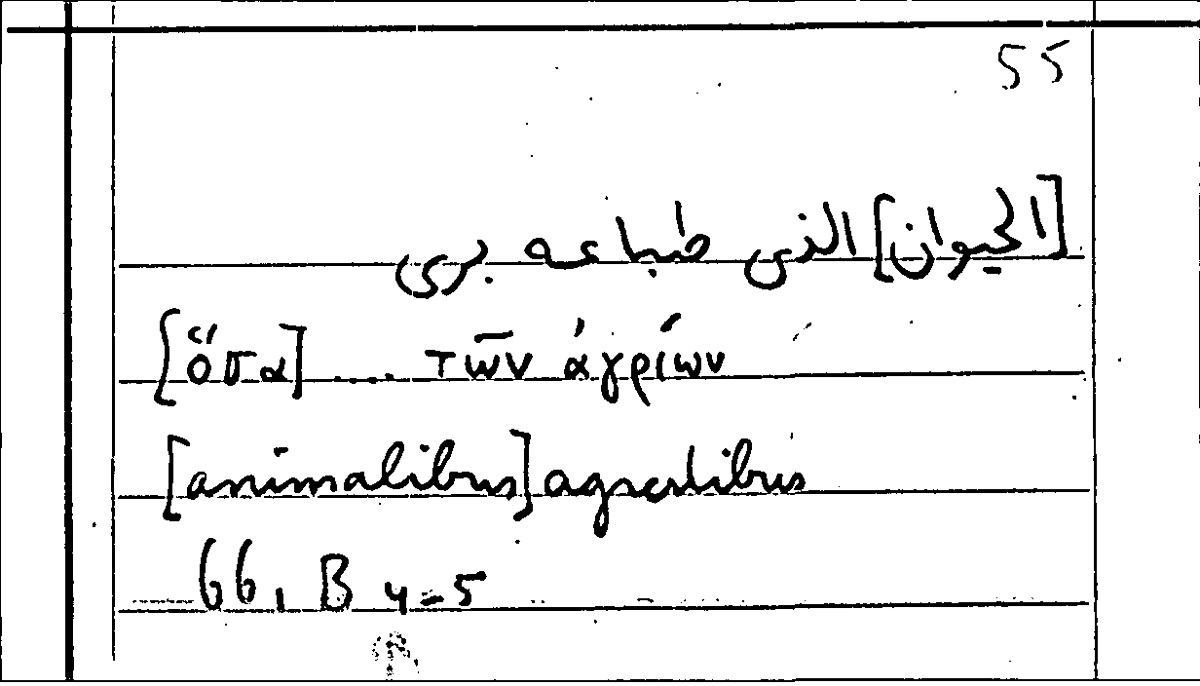 55
[الحيوان] الذى طباعه برى
[ὅσα] .... τῶν ἀγρίων
[animalibus] agrestibus
66, B 4-5